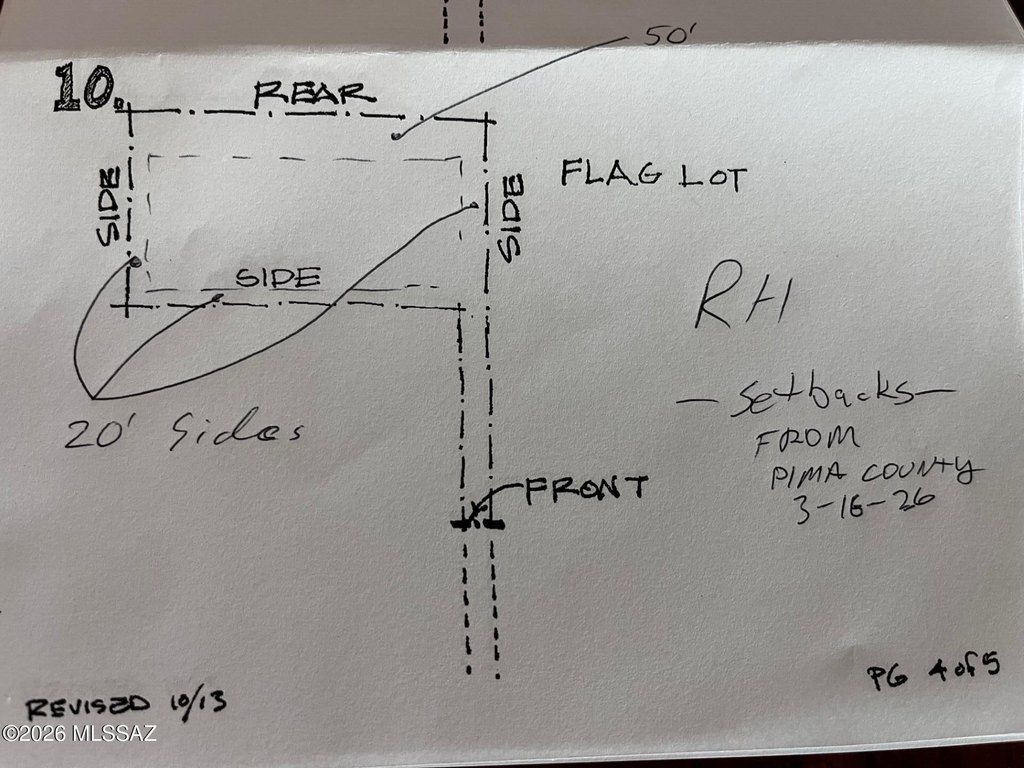 50'
10.
REAR
SIDE
SIDE
FLAG LOT
SIDE
RH
20' Sides
— Setbacks —
FROM
PIMA COUNTY
3-16-26
FRONT
PG 4 of 5
REVISED 10/13
©2026 MLSSAZ